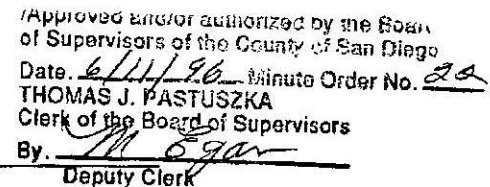 /Approved and/or authorized by the Board
of Supervisors of the County of San Diego
Date. 6/11/96 Minute Order No. 22
THOMAS J. PASTUSZKA
Clerk of the Board of Supervisors
By. M Egan
Deputy Clerk